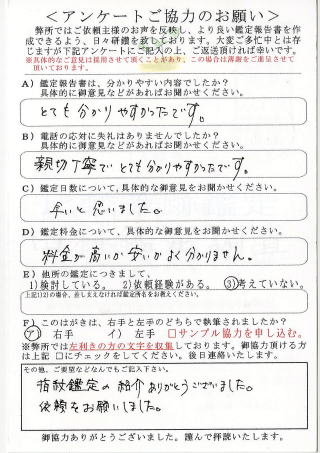 ＜アンケートご協力のお願い＞
弊所ではご依頼主様のお声を反映し、より良い鑑定報告書を作
成できるよう、日々研鑽を致しております。大変ご多忙中とは存
じますが下記アンケートにご記入の上、ご返送頂ければ幸いです。
※具体的なご意見は採用させて頂くことがあり、この場合は薄謝をご進呈させて
頂いております。
A）鑑定報告書は、分かりやすい内容でしたか？
具体的に御意見などがあればお聞かせください。
とても分かりやすかったです。
B）電話の応対に失礼はありませんでしたか？
具体的に御意見などがあればお聞かせください。
親切丁寧でとても分かりやすかったです。
C）鑑定日数について、具体的な御意見をお聞かせください。
早いと思いました。
D）鑑定料金について、具体的な御意見をお聞かせください。
料金が高いか安いかよく分かりません。
E）他所の鑑定につきまして、
1)検討している。 2)依頼経験がある。 3)考えていない。
上記1)2)の場合、差し支えなければ鑑定所名をお教えください。
F）このはがきは、右手と左手のどちらで執筆されましたか？
ア）右手 イ）左手 □サンプル協力を申し込む。
※弊所では左利きの方の文字を収集しております。御協力頂ける方
は上記 □にチェックをしてください。後日連絡いたします。
その他、ご要望などなんでもご記入下さい。
指紋鑑定の紹介ありがとうございました。
依頼をお願いしました。
御協力ありがとうございました。謹んで拝読いたします。